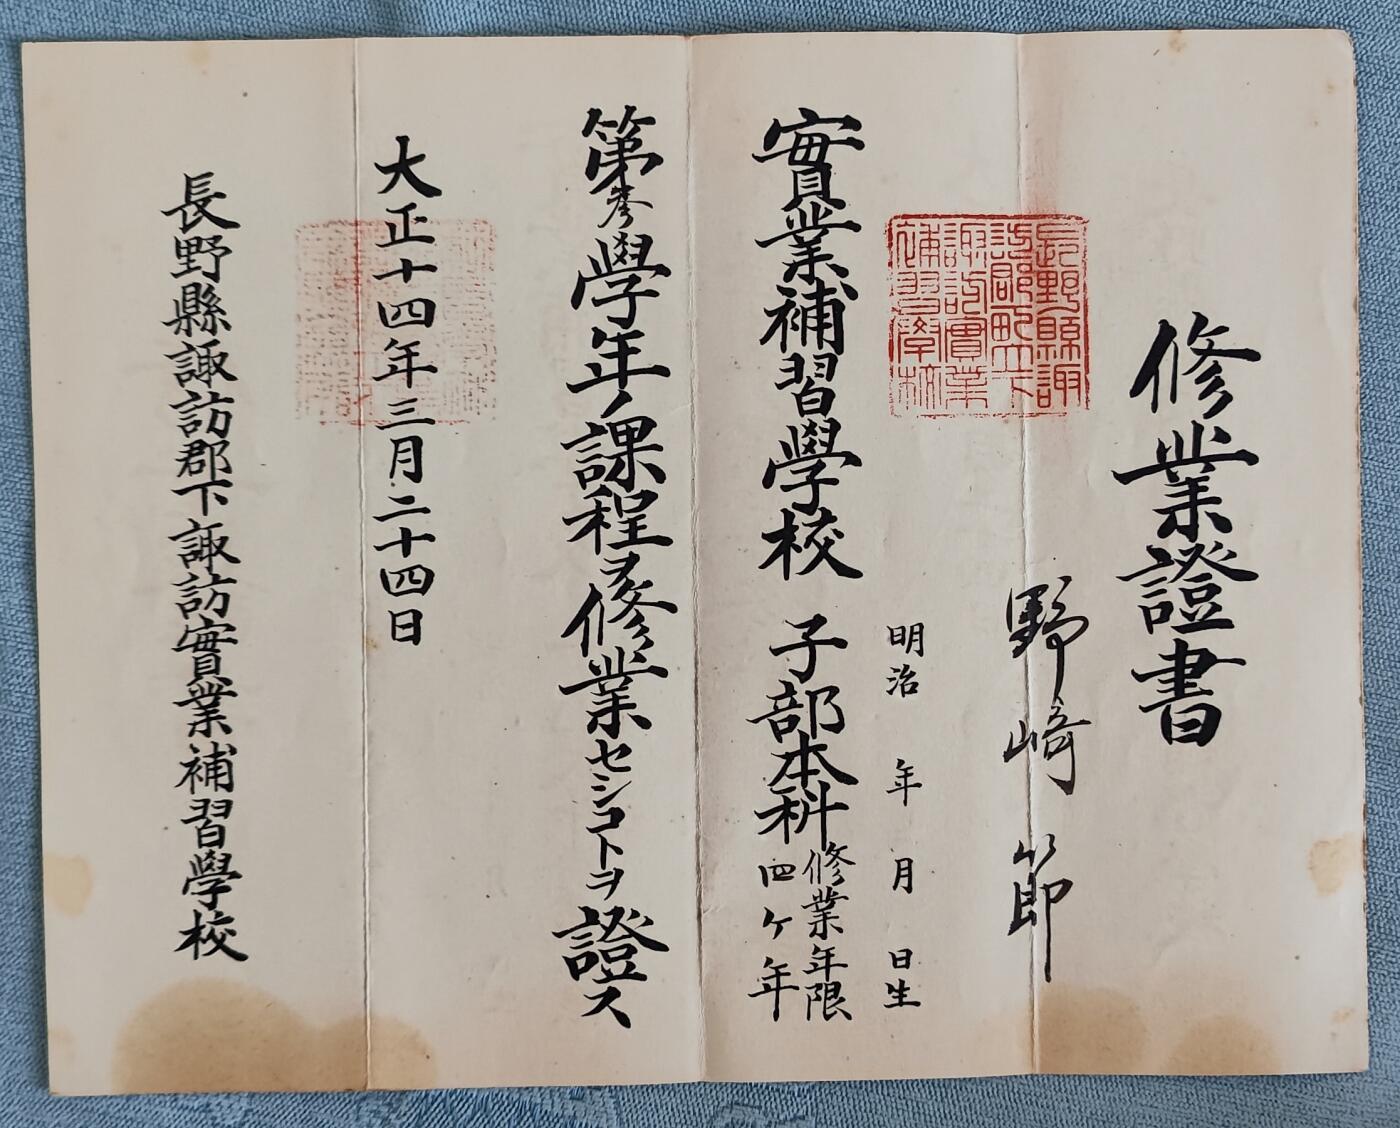 修業證書
野﨑節
明治 年 月 日生
長野縣諏
訪郡町立下
諏訪實業
補習學校
實業補習學校 子部本科 修業年限
四ケ年
第参學年ノ課程ヲ修業セシコトヲ證ス
大正十四年三月二十四日
長野縣諏訪郡下諏訪實業補習學校